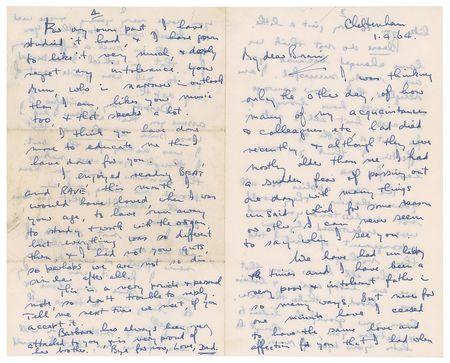 4
For my own part I have
studied it hard & I have grown
to like it very much, & deeply
regret my intolerance. Your
Mum, who is narrower in outlook
than I am, likes your music
too, & that speaks a lot.
I think you have done
more to educate me than I
have done for you.
I enjoyed reading BEAT
and RAVE this month. I
would have loved when I was
your age, to have run away
to study & work with the organ
but everything was so different
then, & I had not your guts
so perhaps we are not so
similar after all.
This is a very private & personal
note so don't trouble to reply.
Tell me next time we meet if you
accept it.
Barbara has always been very
attached to you, & is very proud of
her brother. Bye for now, Love, Dad.
Cheltenham
1.9.64.
My dear Brian,
I was thinking
only the other day, of how
many of my acquaintances
& colleagues etc, had died
recently & although they were
mostly older than me I had
a sudden fear of passing out
one day with many things
unsaid, which for some reason
or other, I can never seem
to say when I see you
We have had unhappy
times and I have been a
very poor & intolerant father in
so many ways, but never for
one minute have I ceased
to have the same love and
affection for you that I had when